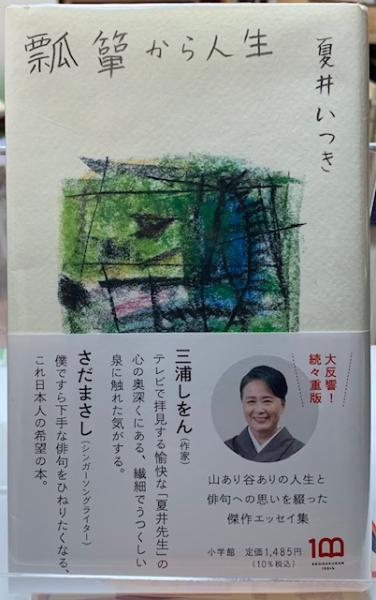 瓢箪から人生
夏井いつき
大反響！
続々重版
三浦しをん（作家）
テレビで拝見する愉快な「夏井先生」の
心の奥深くにある、繊細でうつくしい
泉に触れた気がする。
さだまさし（シンガーソングライター）
僕ですら下手な俳句をひねりたくなる、
これ日本人の希望の本。
山あり谷ありの人生と
俳句への思いを綴った
傑作エッセイ集
小学館 定価1,485円
（10％税込）
100
SHOGAKUKAN